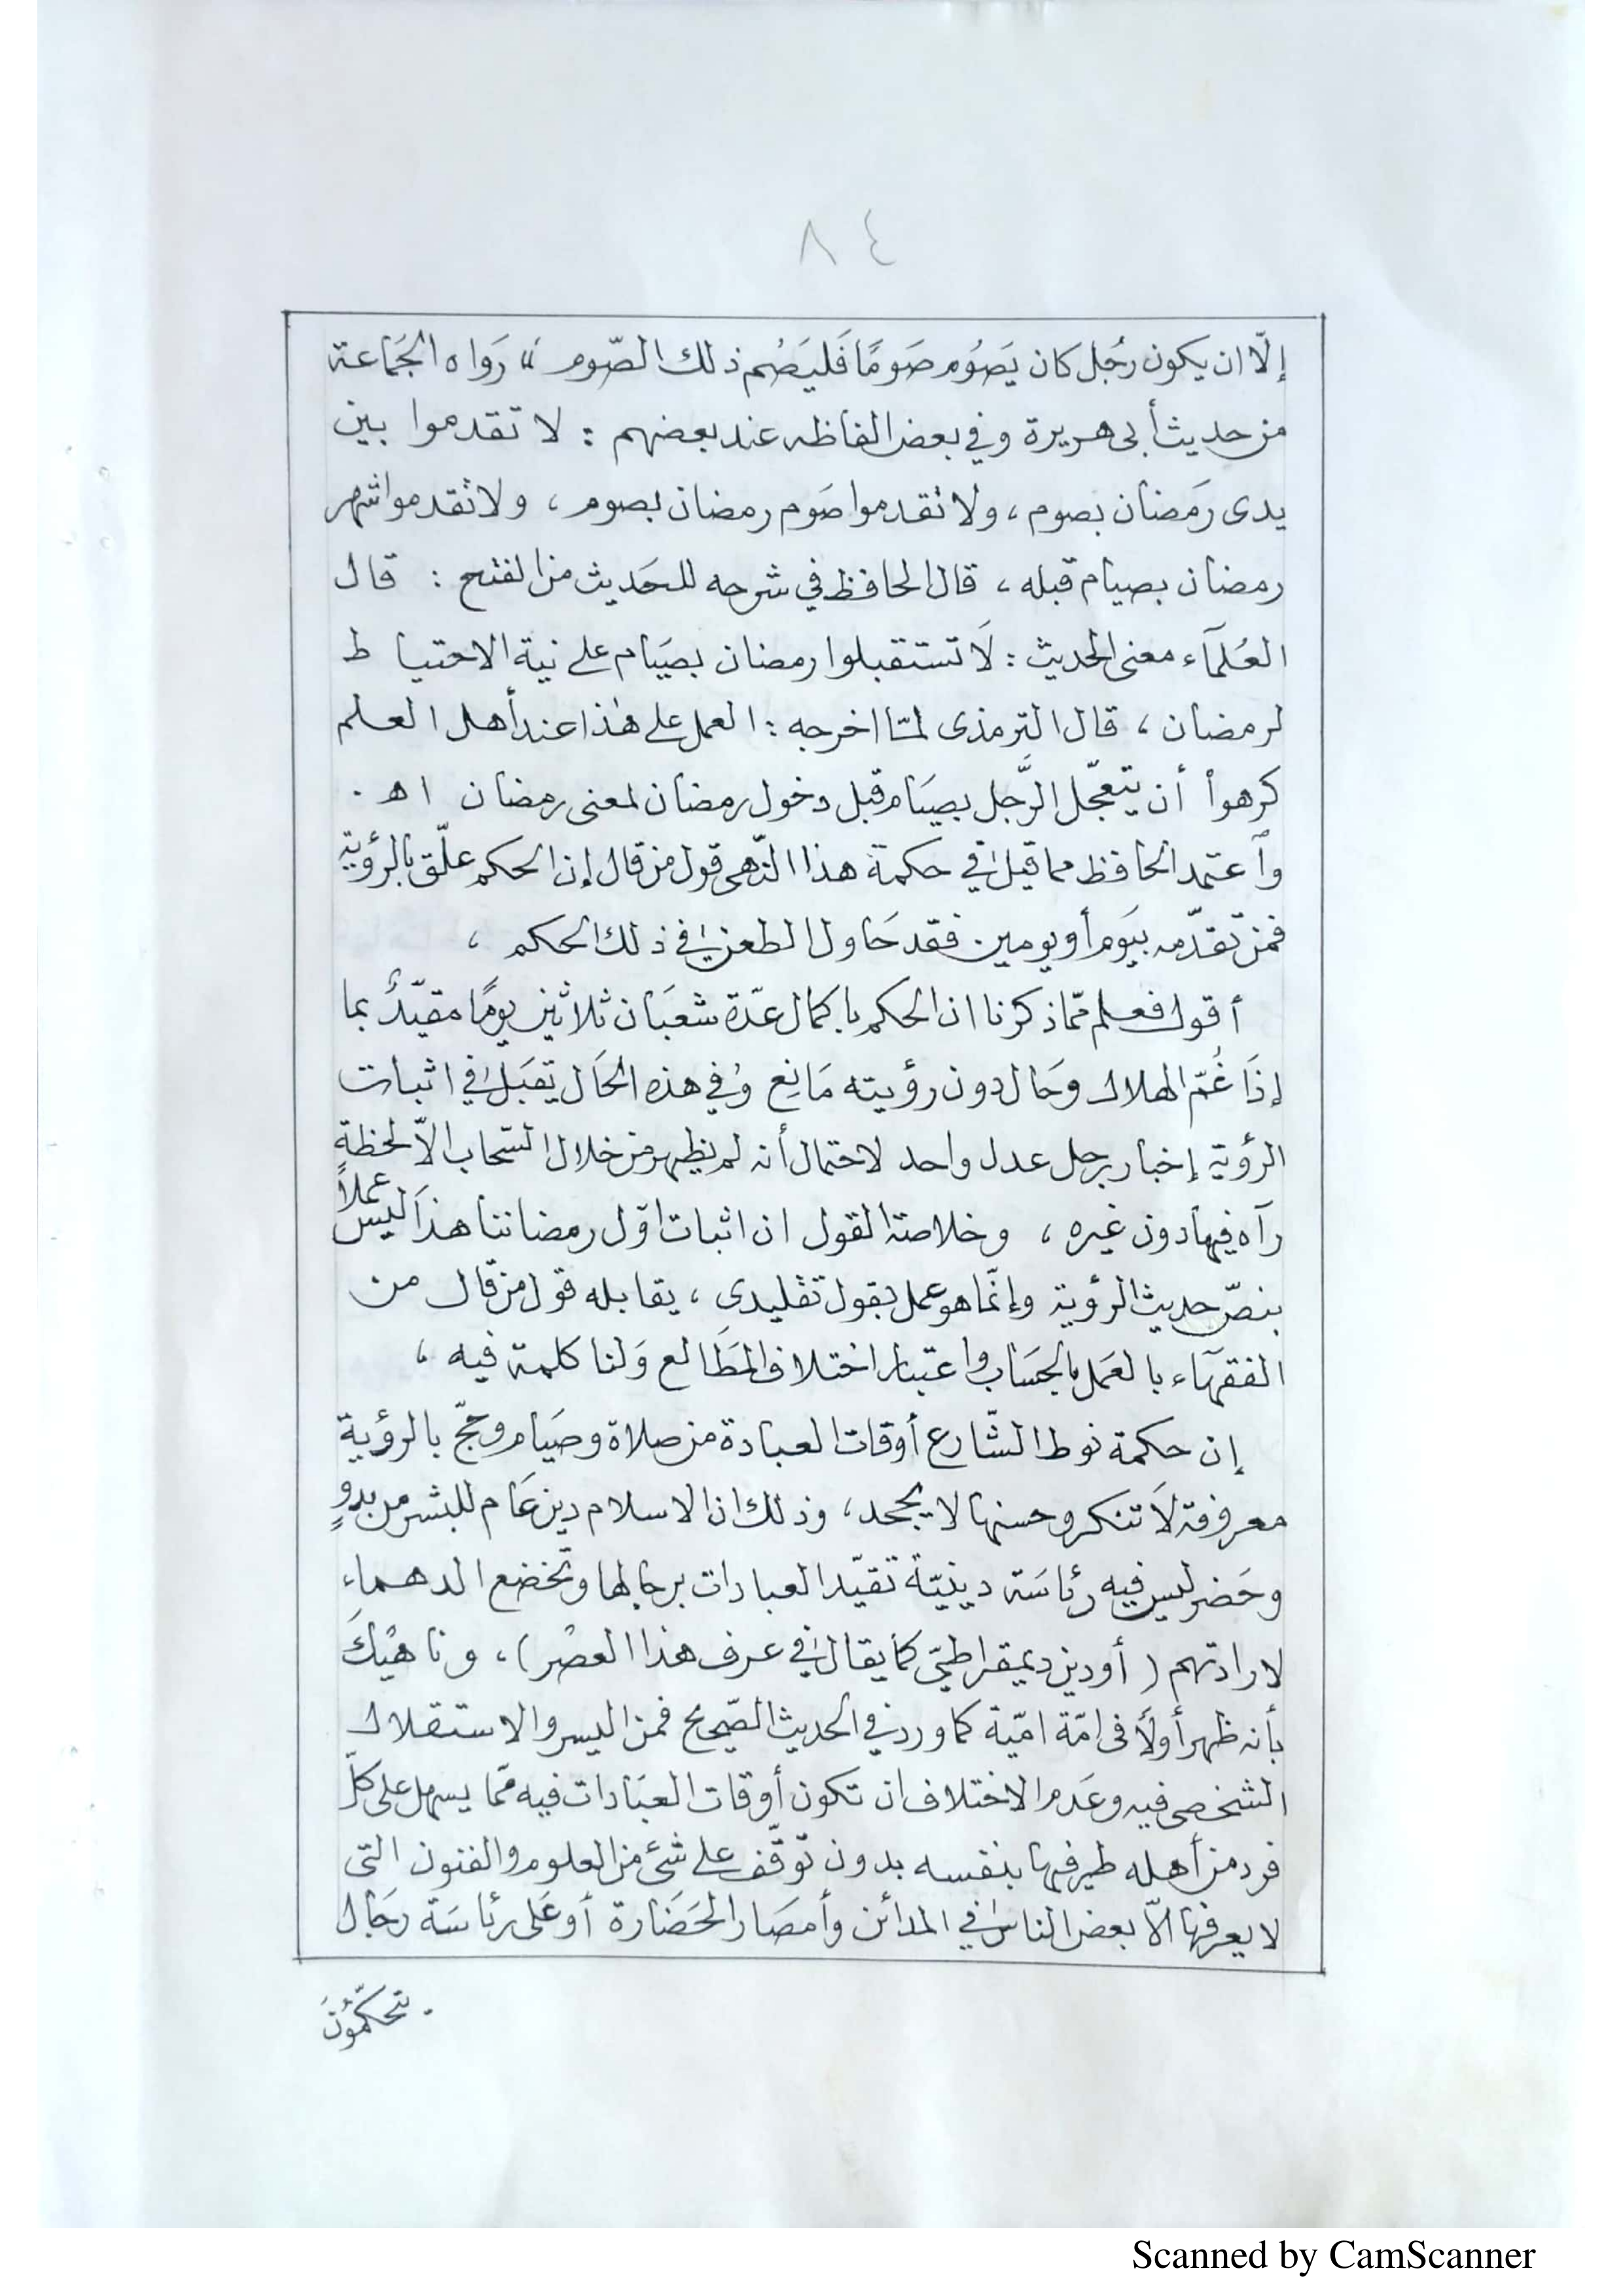 ٨٤
إلّا ان يكون رجُل كان يَصَوُم صَومًا فَليَصُم ذلك الصّوم» رَواه الجَماعة
من حديث أبى هريرة وفي بعض الفاظه عند بعضهم : لا تقدموا بين
يدى رَمضان بصوم ، ولا تقدموا صَوم رمضان بصوم ، ولا تقدموا شهر
رمضان بصيام قبله ، قال الحافظ في شرحه للحَديث من الفتح : قال
العُلمآء معنى الحديث : لَا تستقبلوا رمضان بصيَام على نية الاحتياط
لرمضان ، قال الترمذى لمّا اخرجه : العمل على هٰذا عند أهل العلم
كرهوا أن يتعجّل الرَّجل بصيَام قبل دخول رمضان لمعنى رمضان اهـ .
وآعتمد الحافظ مما قيل في حكمة هذا النّهى قول من قال إن الحكم علّق بالرؤية
فمن تقدّمه بيَوم أو يومين فقد حَاول الطعن في ذلك الحكم ،
أقول فعلم ممّا ذكرنا ان الحكم باكمال عدّة شعبَان ثلاثين يومًا مقيّدٌ بما
إذَا غُمّ الهلال وحَال دون رؤيته مَانِع وفي هذه الحَال تقبَل في اثبات
الرؤية إخبار رجل عدل واحد لاحتمال أنه لم يظهر من خلال السّحاب الّا لحظة
رآه فيها دون غيره ، وخلاصة القول ان اثبات اوّل رمضاننا هذا ليسَ عملاً
بنصّ حديث الرؤية وإنّما هو عمل بقول تقليدى ، يقابله قول من قال من
الفقهآء بالعمَل بالحسَاب واعتبار اختلاف المَطَالع وَلنا كلمة فيه ،
إن حكمة نوط الشّارع أوقات العبادة من صلاة وصيَام وحجّ بالرؤية
معروفة لَا تنكر وحسنها لا يجحد ، وذلك ان الاسلام دين عَام للبشر من بدوٍ
وحَضر ليس فيه رئاسَة دينيّة تقيّد العبادات برجالها وتخضع الدهماء
لارادتهم (أو دين ديمقراطيّ كما يقال في عرف هذا العصْر) ، وناهيْكَ
بأنه ظهر أولاً فى امّة اميّة كما ورد في الحديث الصّحيح فمن اليسر والاستقلال
الشخصى فيه وعَدم الاختلاف ان تكون أوقات العبَادات فيه ممّا يسهل على كلّ
فرد من أهله بنفسه بدون توقّف على شئ من العلوم والفنون التى
لا يعرفها الّا بعض الناس في المدائن وأمصَار الحَضَارة أو عَلى رئاسَة رجَال
تحكمّوُنَ
Scanned by CamScanner